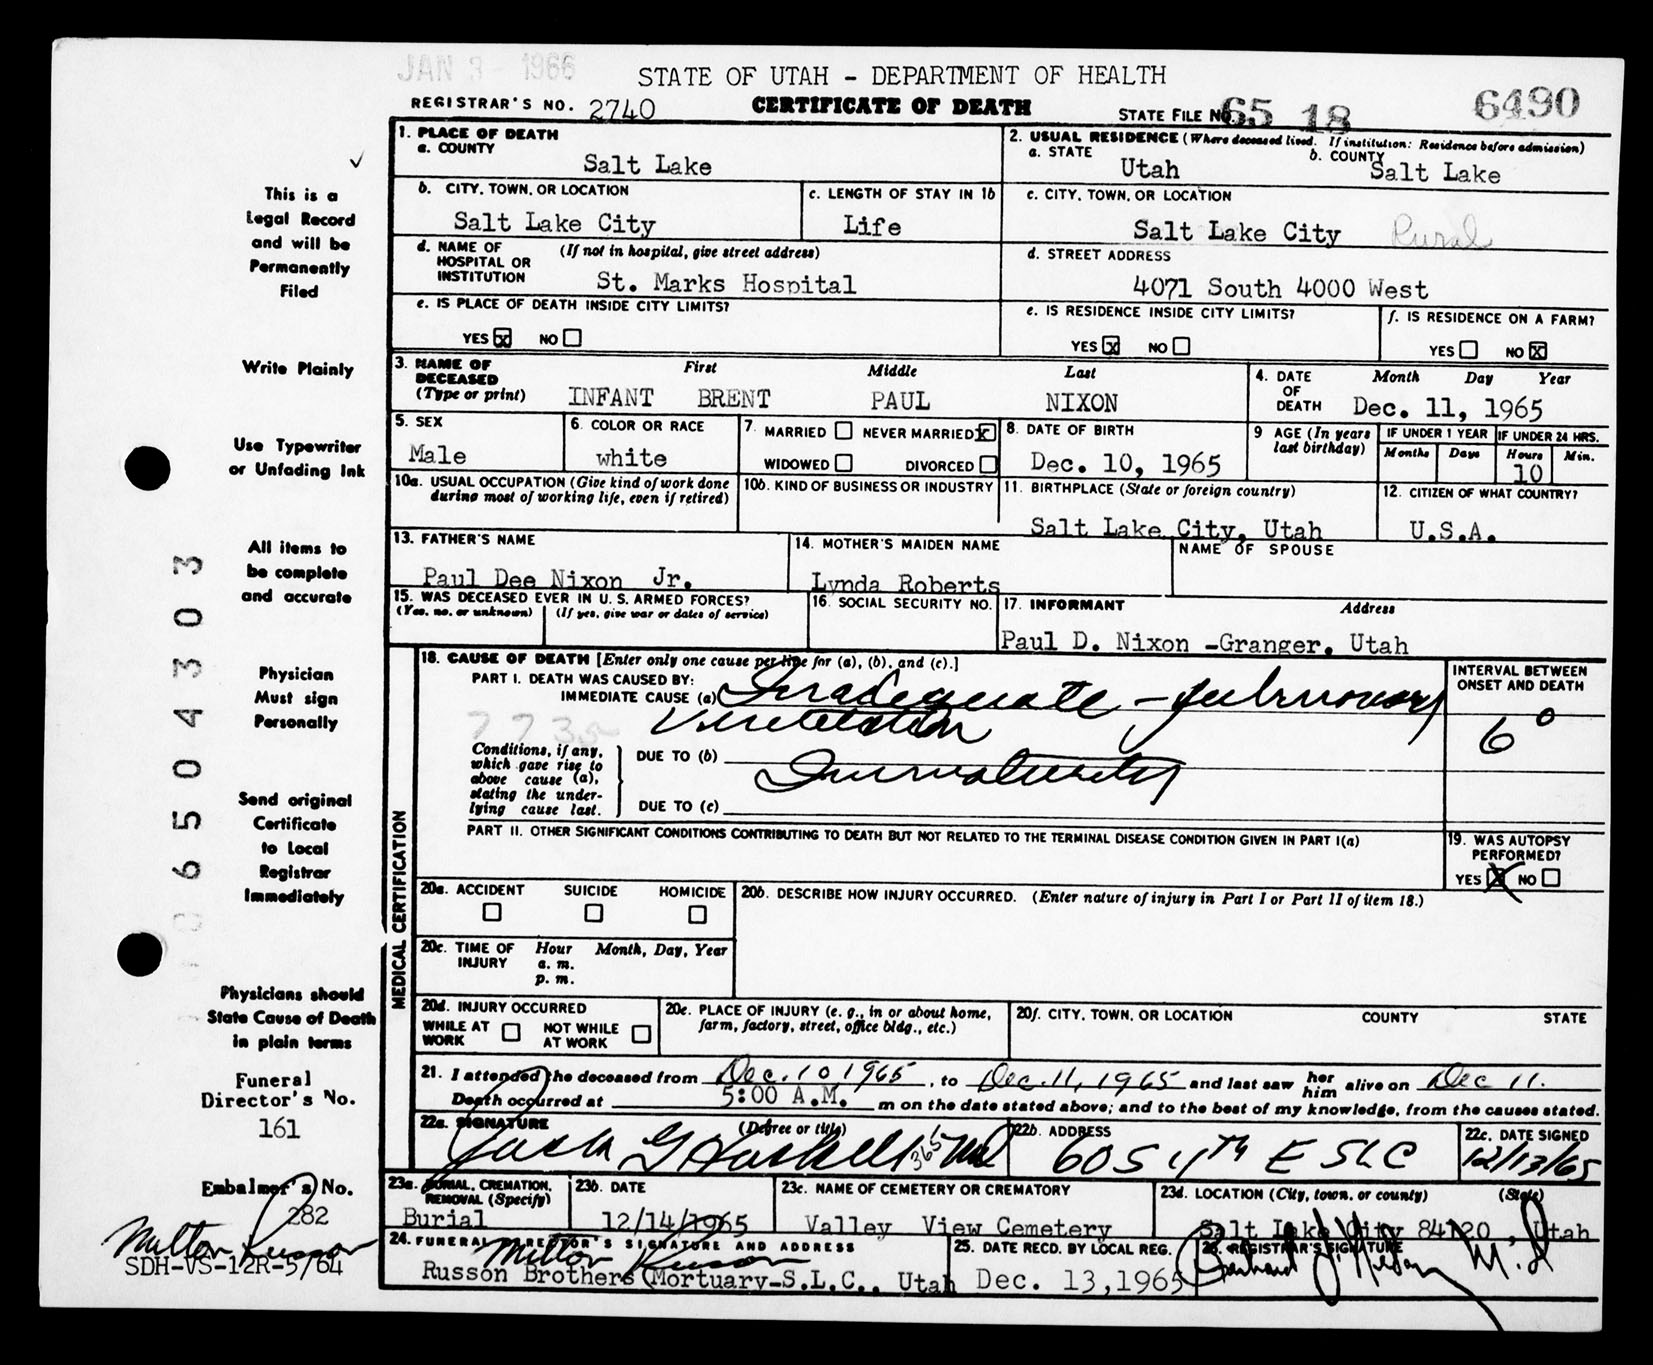 JAN 3 - 1966
STATE OF UTAH - DEPARTMENT OF HEALTH
REGISTRAR'S NO. 2740 CERTIFICATE OF DEATH STATE FILE NO. 65 18 6490
This is a Legal Record and will be Permanently Filed
Write Plainly
Use Typewriter or Unfading Ink
All items to be complete and accurate
Physician Must sign Personally
Send original Certificate to Local Registrar Immediately
Physicians should State Cause of Death in plain terms
Funeral Director's No.
161
Embalmer's No.
282
Milton Russon
SDH-VS-12R-5/64
6 5 0 4 3 0 3
1. PLACE OF DEATH
a. COUNTY
Salt Lake
2. USUAL RESIDENCE (Where deceased lived. If institution: Residence before admission)
a. STATE Utah b. COUNTY Salt Lake
b. CITY, TOWN, OR LOCATION
Salt Lake City
c. LENGTH OF STAY IN 1b
Life
c. CITY, TOWN, OR LOCATION
Salt Lake City Rural
d. NAME OF HOSPITAL OR INSTITUTION (If not in hospital, give street address)
St. Marks Hospital
d. STREET ADDRESS
4071 South 4000 West
e. IS PLACE OF DEATH INSIDE CITY LIMITS?
YES X NO
e. IS RESIDENCE INSIDE CITY LIMITS?
YES X NO
f. IS RESIDENCE ON A FARM?
YES NO X
3. NAME OF DECEASED (Type or print) First Middle Last
INFANT BRENT PAUL NIXON
4. DATE OF DEATH Month Day Year
Dec. 11, 1965
5. SEX
Male
6. COLOR OR RACE
white
7. MARRIED NEVER MARRIED X
WIDOWED DIVORCED
8. DATE OF BIRTH
Dec. 10, 1965
9 AGE (In years last birthday)
IF UNDER 1 YEAR IF UNDER 24 HRS.
Months Days Hours Min.
10
10a. USUAL OCCUPATION (Give kind of work done during most of working life, even if retired)
10b. KIND OF BUSINESS OR INDUSTRY
11. BIRTHPLACE (State or foreign country)
Salt Lake City, Utah
12. CITIZEN OF WHAT COUNTRY?
U.S.A.
13. FATHER'S NAME
Paul Dee Nixon Jr.
14. MOTHER'S MAIDEN NAME
Lynda Roberts
NAME OF SPOUSE
15. WAS DECEASED EVER IN U. S. ARMED FORCES?
(Yes, no, or unknown) (If yes, give war or dates of service)
16. SOCIAL SECURITY NO.
17. INFORMANT Address
Paul D. Nixon -Granger, Utah
MEDICAL CERTIFICATION
18. CAUSE OF DEATH [Enter only one cause per line for (a), (b), and (c).]
PART I. DEATH WAS CAUSED BY:
IMMEDIATE CAUSE (a) Inadequate - pulmonary
7735 Ventilation
INTERVAL BETWEEN ONSET AND DEATH
6°
Conditions, if any, which gave rise to above cause (a), stating the underlying cause last.
DUE TO (b)
Immaturity
DUE TO (c)
PART II. OTHER SIGNIFICANT CONDITIONS CONTRIBUTING TO DEATH BUT NOT RELATED TO THE TERMINAL DISEASE CONDITION GIVEN IN PART I(a)
19. WAS AUTOPSY PERFORMED?
YES X NO
20a. ACCIDENT SUICIDE HOMICIDE
20b. DESCRIBE HOW INJURY OCCURRED. (Enter nature of injury in Part I or Part II of item 18.)
20c. TIME OF INJURY Hour Month, Day, Year
a. m.
p. m.
20d. INJURY OCCURRED
WHILE AT WORK NOT WHILE AT WORK
20e. PLACE OF INJURY (e. g., in or about home, farm, factory, street, office bldg., etc.)
20f. CITY, TOWN, OR LOCATION COUNTY STATE
21. I attended the deceased from Dec. 10 1965, to Dec. 11, 1965 and last saw her him alive on Dec 11.
Death occurred at 5:00 A.M. m on the date stated above; and to the best of my knowledge, from the causes stated.
22a. SIGNATURE (Degree or title)
22b. ADDRESS
60 S 4th E SLC
22c. DATE SIGNED
12/13/65
23a. BURIAL, CREMATION, REMOVAL (Specify)
Burial
23b. DATE
12/14/1965
23c. NAME OF CEMETERY OR CREMATORY
Valley View Cemetery
23d. LOCATION (City, town, or county) (State)
Salt Lake City 84120, Utah
24. FUNERAL DIRECTOR'S SIGNATURE AND ADDRESS
Milton Russon
Russon Brothers Mortuary-S.L.C., Utah
25. DATE RECD. BY LOCAL REG.
Dec. 13, 1965
26. REGISTRAR'S SIGNATURE
M.D